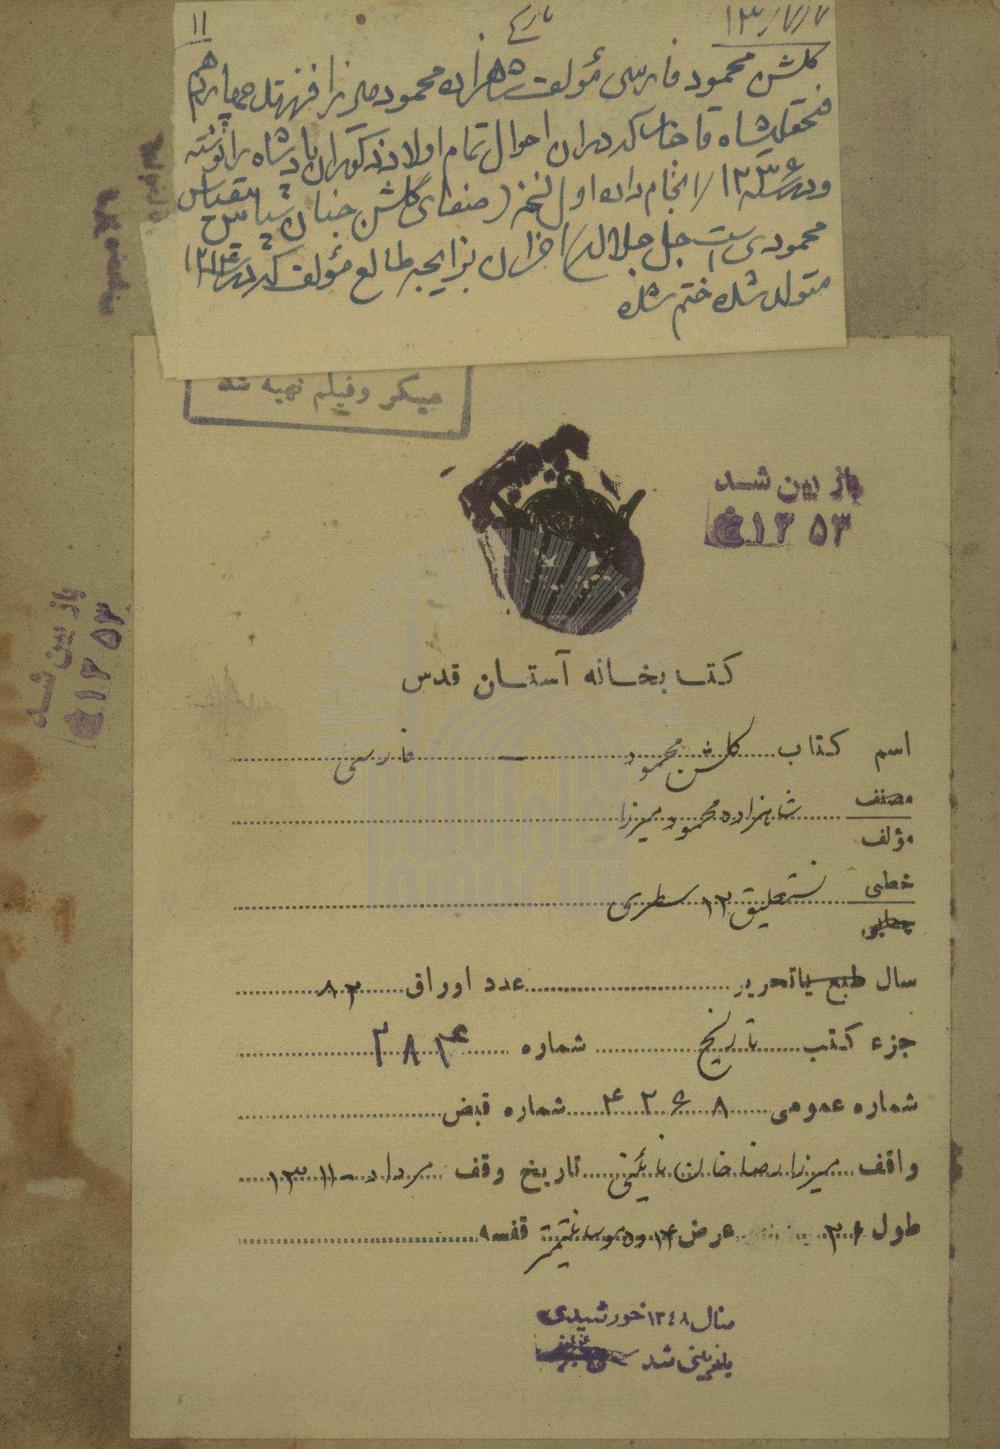 ۱۳/۷/۷ تاریخ ۱۱
گلشن محمود فارسی مؤلف شاهزاده محمود میرزا فرزند چهاردهم
فتحعلیشاه قاجار که در ان احوال تمام اولاد ذکور ان پادشاه را نوشته
و در سنه ۱۲۳۶ انجام داده اول نسخه (صفای گلشن جنان سپاس بیقیاس
محمودی است جل جلاله) اخر ان بزایجه طالع مؤلف که در سنه ۱۲۱۴
متولد شده ختم شده
میکر وفیلم تهیه شد
باز بین شد
۱۳۵۳
باز بین شد
۱۳۵۳
کتابخانه آستان قدس
اسم کتاب گلشن محمود — فارسی
مصنف شاهزاده محمود میرزا
مؤلف
خطی نستعلیق ۱۲ سطری
چاپی
سال طبع یا تحریر عدد اوراق ۸۲
جزء کتب تاریخ شماره ۲۸۴
شماره عمومی ۴۲۶۸ شماره قبض
واقف میرزا رضا خان نائینی تاریخ وقف مرداد ۱۳۱۱
طول ۲۱ عرض ۱۴ سانتیمتر قفسه
سال ۱۳۴۸ خورشیدی
بازبینی شد